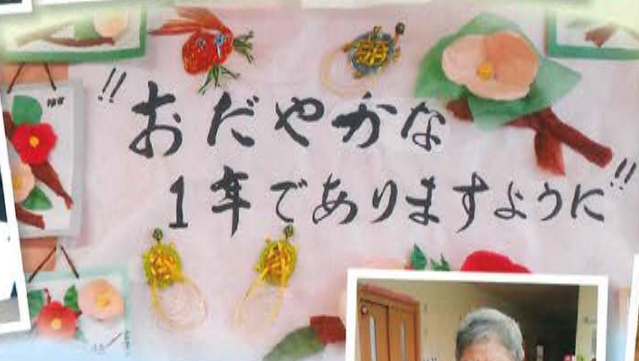 "おだやかな
1年でありますように"